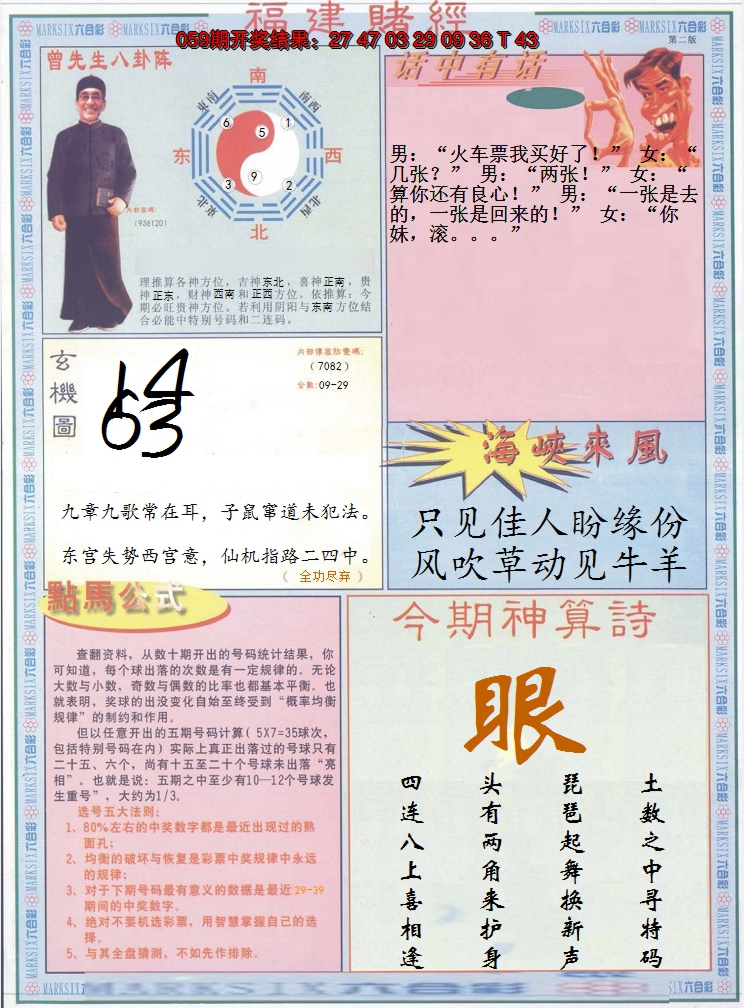 福建賭經
059期开奖结果：27 47 03 29 09 36 T 43
MARKSIX六合彩
第二版
曾先生八卦阵
南
东南
南西
6
5
1
东
西
3
9
2
东北
北西
北
内部密碼:
(936120)
理推算各神方位，吉神东北，喜神正南，贵
神正东，财神西南和正西方位。依推算：今
期必旺贵神方位。若利用阴阳与东南方位结
合必能中特别号码和二连码。
话中有话
男：“火车票我买好了！” 女：“
几张？” 男：“两张！” 女：“
算你还有良心！” 男：“一张是去
的，一张是回来的！” 女：“你
妹，滚。。。”
玄機圖
14
63
内部傳密防密碼:
(7082)
合数:09-29
九章九歌常在耳，子鼠窜道未犯法。
东宫失势西宫意，仙机指路二四中。
（ 全功尽弃 ）
海峽來風
只见佳人盼缘份
风吹草动见牛羊
點馬公式
查翻资料，从数十期开出的号码统计结果，你
可知道，每个球出落的次数是有一定规律的。无论
大数与小数，奇数与偶数的比率也都基本平衡。也
就表明，奖球的出没变化自始至终受到“概率均衡
规律”的制约和作用。
但以任意开出的五期号码计算( 5X7=35球次，
包括特别号码在内）实际上真正出落过的号球只有
二十五、六个，尚有十五至二十个号球未出落“亮
相”。也就是说：五期之中至少有10—12个号球发
生重号”，大约为1/3。
选号五大法则：
1、80%左右的中奖数字都是最近出现过的熟
面孔；
2、均衡的破坏与恢复是彩票中奖规律中永远
的规律；
3、对于下期号码最有意义的数据是最近29-39
期间的中奖数字。
4、绝对不要机选彩票，用智慧掌握自己的选
择。
5、与其全盘猜测，不如先作排除。
今期神算詩
眼
土数之中寻特码
琵琶起舞换新声
头有两角来护身
四连八上喜相逢